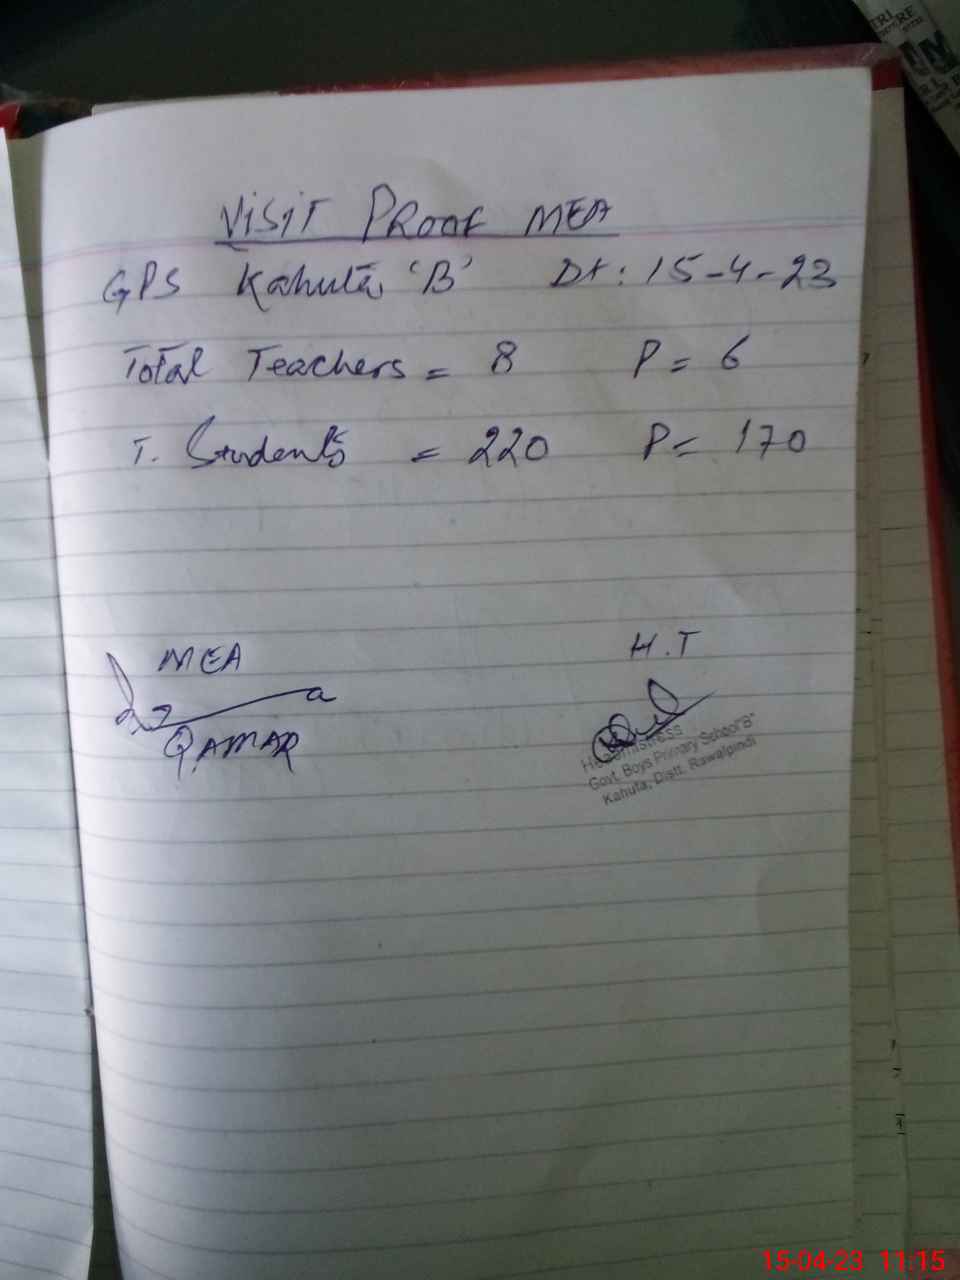 VISIT PROOF MEA
GPS Kahuta 'B' Dt: 15-4-23
Total Teachers = 8 P = 6
T. Students = 220 P = 170
MEA
QAMAR
H.T
Headmistress
Govt. Boys Primary School "B"
Kahuta, Distt. Rawalpindi
15-04-23 11:15